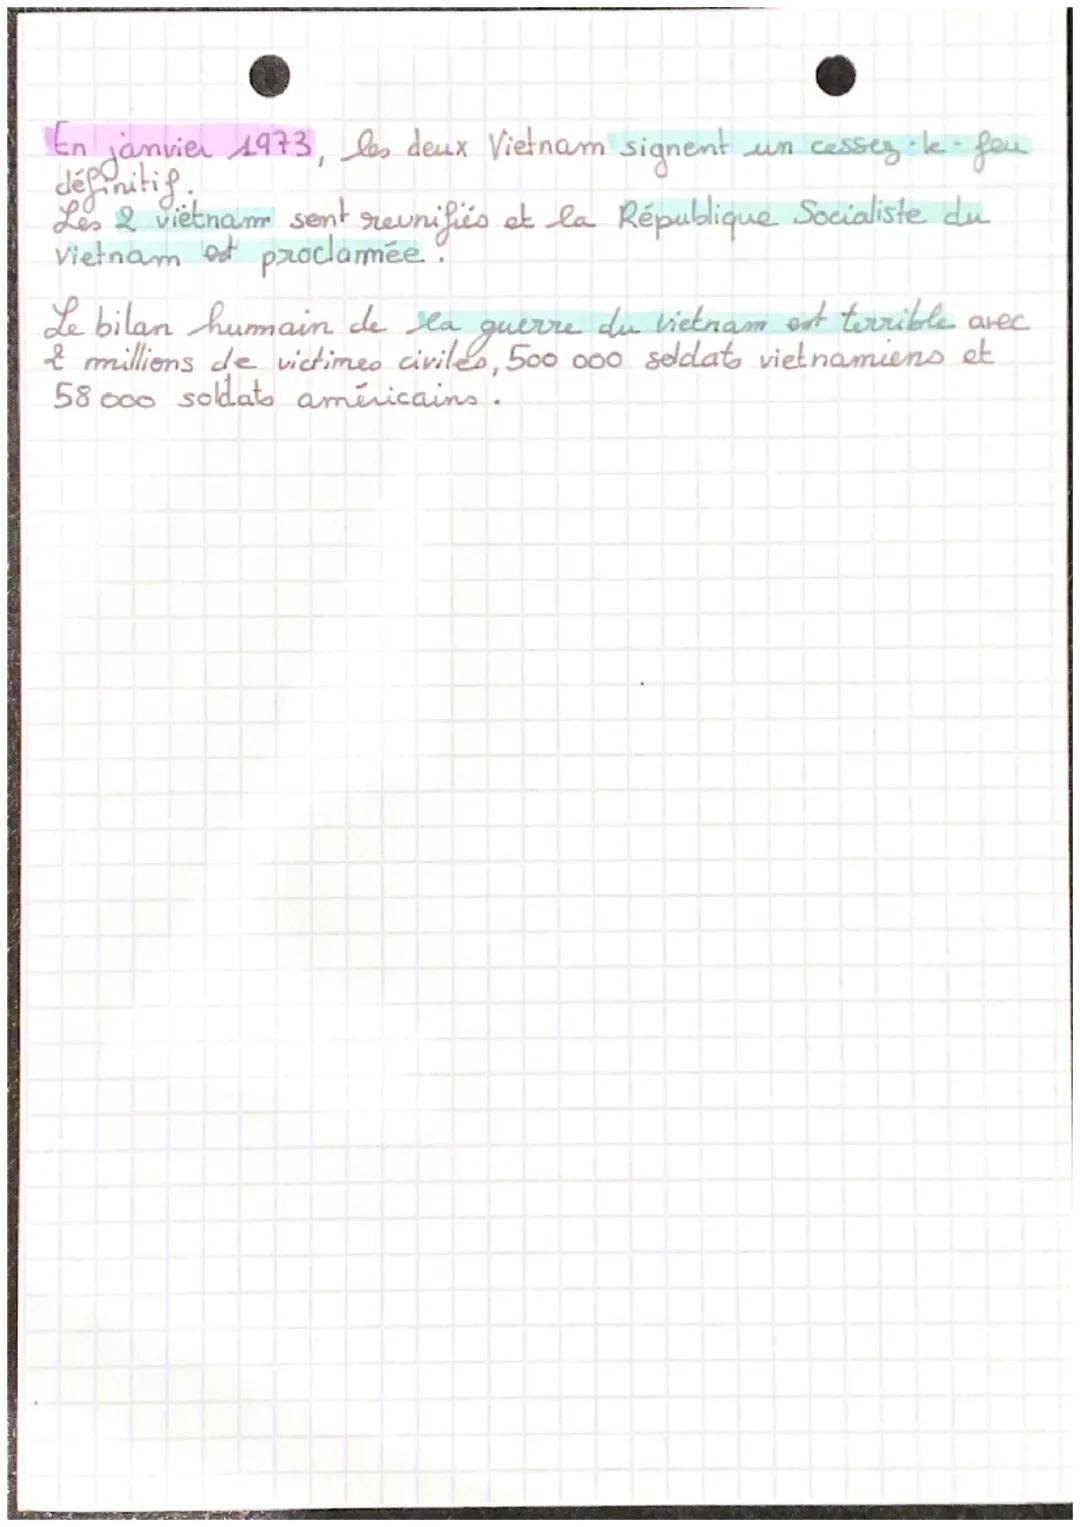 En janvier 1973, les deux Vietnam signent un cessez-le-feu
définitif.
Les 2 viëtnam sent reunifiés et la République Socialiste du
Vietnam est proclamée.
Le bilan humain de la guerre du Vietnam est terrible avec
2 millions de victimes civiles, 500 000 soldats vietnamiens et
58 000 soldats américains.